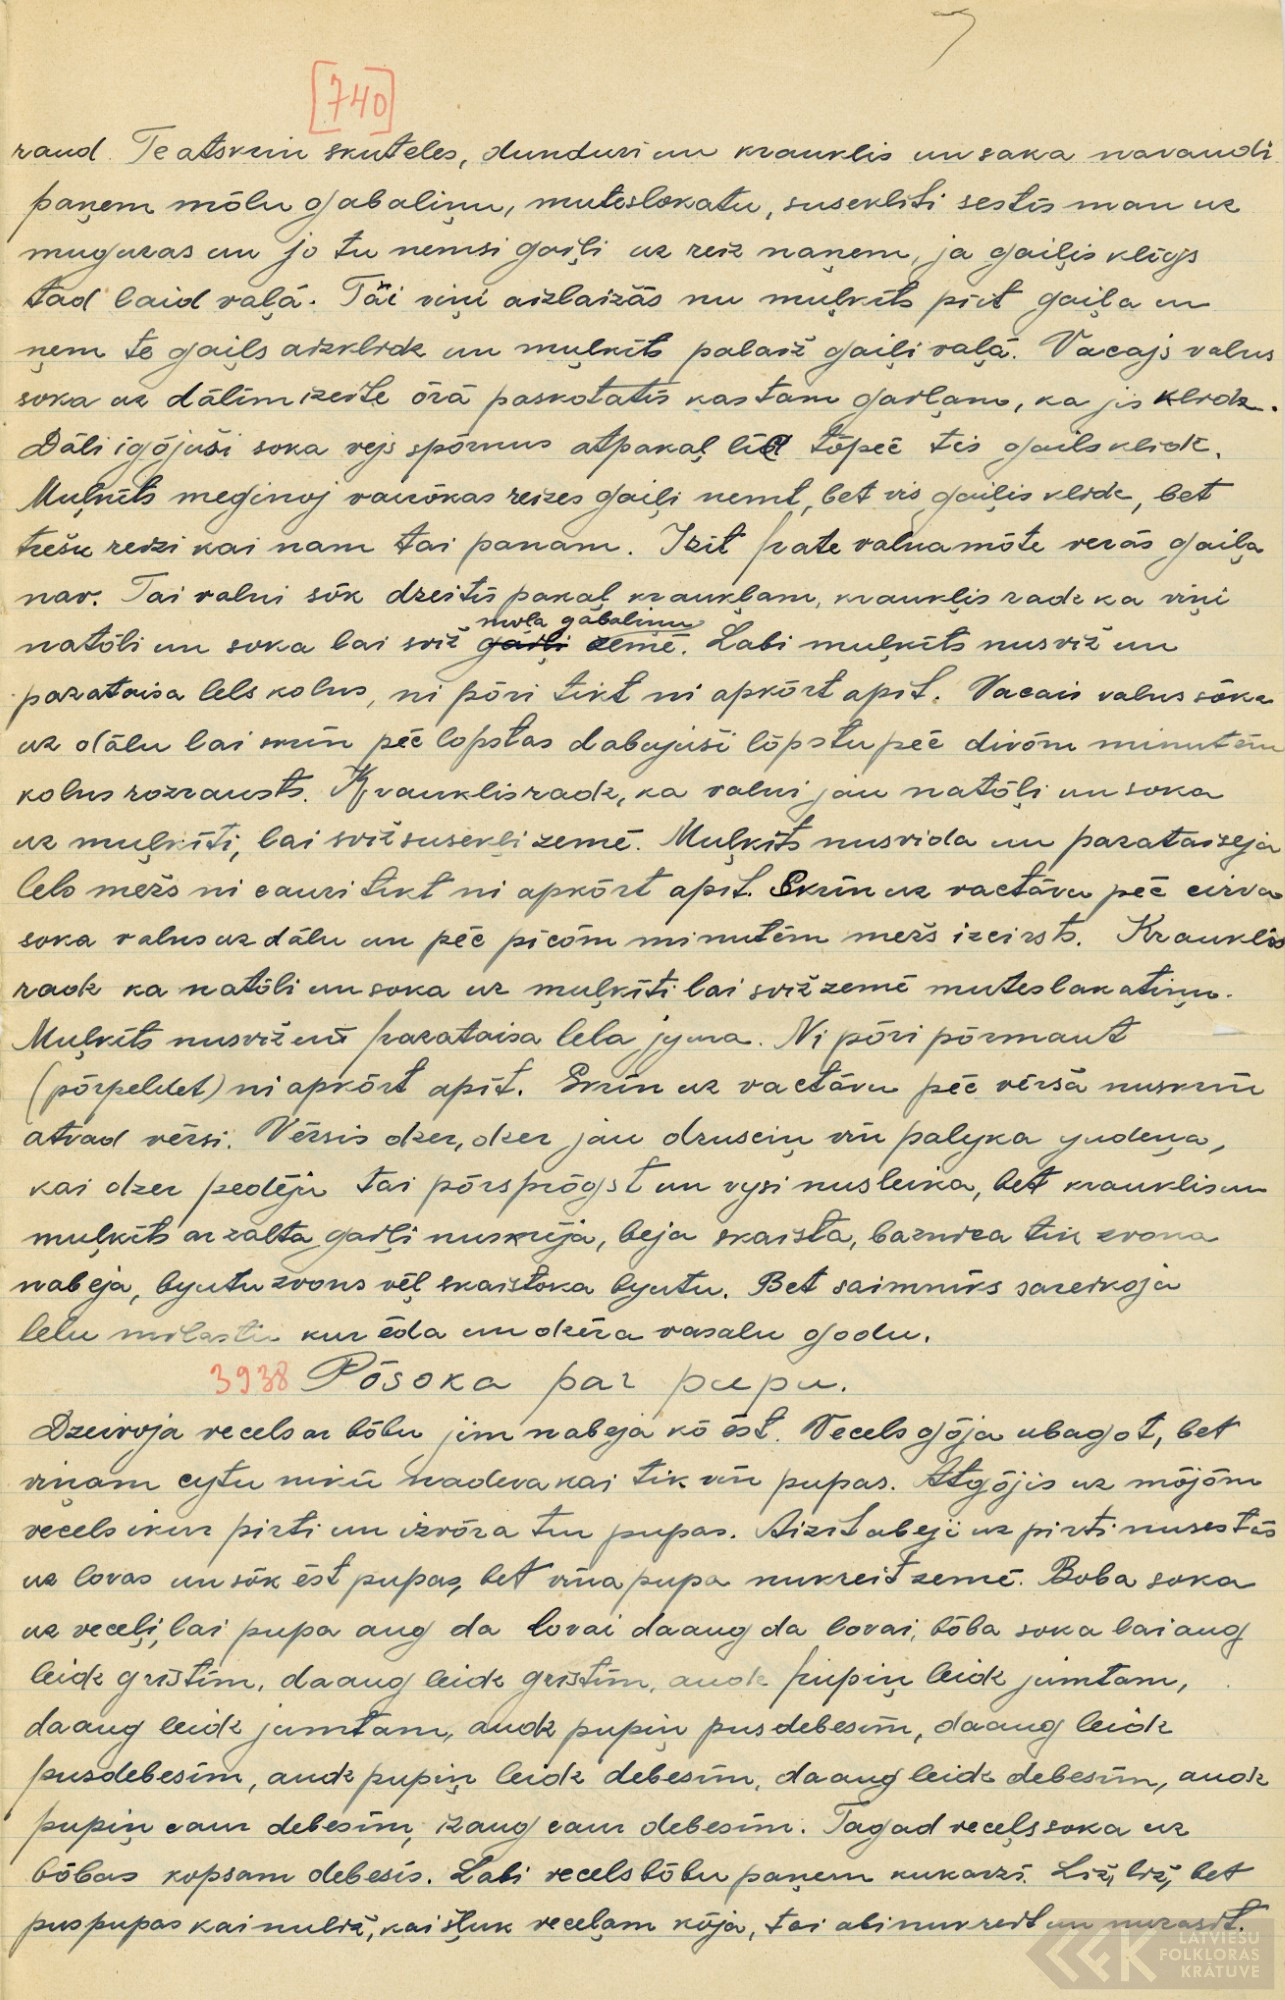 7
[740]
raud. Te atskrin skuteles, dunduri un krauklis un saka naraudi
paņem mōlu gabaliņu, muteslokatu, susekliti sestīs man uz
muguras un jo tu nemsi gaiļi uz reiz naņem, ja gaiļis klīgs
tad laid vaļā. Tāi viņi aizlaizās nu muļkīts pīit gaiļa un
ņem te gaiļs aizklidz un muļkīts palaiž gaiļi vaļā. Vacajs valns
soka uz dālim izeite ōrā paskotatīs kas tam gaiļam, ka jis klidz.
Dāli īgōjuši soka vejs spōrnus atpakaļ līc tōpeč tis gails klidz.
Muļkīts meginoj vairōkas reizes gaiļi nemt, bet vis gaiļis klidz, bet
trešu reizi kai nam tai panam. Izit pate valnamōte verās gaiļa
nav. Tai valni sōk dzeitīs pakaļ kraukļam, krauklis radz ka viņi
natōli un soka lai sviž gaiļi mola gabaliņu zemē. Labi muļkīts nusviž un
pazataisa lels kolns, ni pōri tikt ni apkōrt apīt. Vacais valns sōka
uz dālu lai skrin pēč lopstas dabujuši lōpstu pēč divōm minutēm
kolns rozrausts. Krauklis radz, ka valni jau natōļi un soka
uz muļkīti, lai sviž susekļi zemē. Muļkīts nusvida un pazataiseja
lels mežs ni cauri tikt ni apkōrt apīt. Skrin uz vactāvu pēč cirva
soka valns uz dālu un pēč pīcōm minutēm mežs izcirsts. Krauklis
radz ka natōli un soka uz muļkīti lai sviž zemē muteslakatiņu.
Muļkīts nusviž un pazataisa lela jyura. Ni pōri pōrmaut
(pōrpeldet) ni apkōrt apīt. Skrin uz vactāvu pēč vērša nuskrin
atvad vērsi. Vērsis dzer, dzer jau druseiņ vīn palyka yudeņa,
kai dzer pedēju tai pōrsprōgst un vysi nusleika, bet krauklis un
muļkīts ar zalta gaiļi nuskrēja, beja skaista, baznica tik zvona
nabēja, byutu zvons vēļ skaistoka byutu. Bet saimniks sareikoja
lelu milastu kur ēda un dzēra vasalu godu.
3938 Pōsoka par pupu.
Dzeivoja vecels ar bōbu jim nabeja kō ēst. Vecels gōja ubagot, bet
viņam cytu nikō nadeva kai tik vīn pupas. Atgōjis uz mōjōm
vecels ikur pirti un izvōra tu pupas. Aizit abeji uz pirti nusestīs
uz lovas un sōk ēst pupas, bet vīna pupa nukreit zemē. Boba soka
uz veceļi, lai pupa aug da lovai daaug da lovai, bōba soka lai aug
leidz gristim, daaug leidz gristim, audz pupiņ leidz jumtam,
daaug leidz jumtam, audz pupiņ pusdebesim, daaug leidz
pusdebesim, audz pupiņ leidz debesim, daaug leidz debesim, audz
pupiņ caur debesim, izaug caur debesim. Tagad veceļs soka uz
bōbas kopsam debesīs. Labi vecels bōbu paņem kukarzī. Liž, liž, bet
puspupas kai nuliž, kai šļuk veceļam kōja, tai abi nukreit un nurasit.
LATVIEŠU
FOLKLORAS
KRĀTUVE